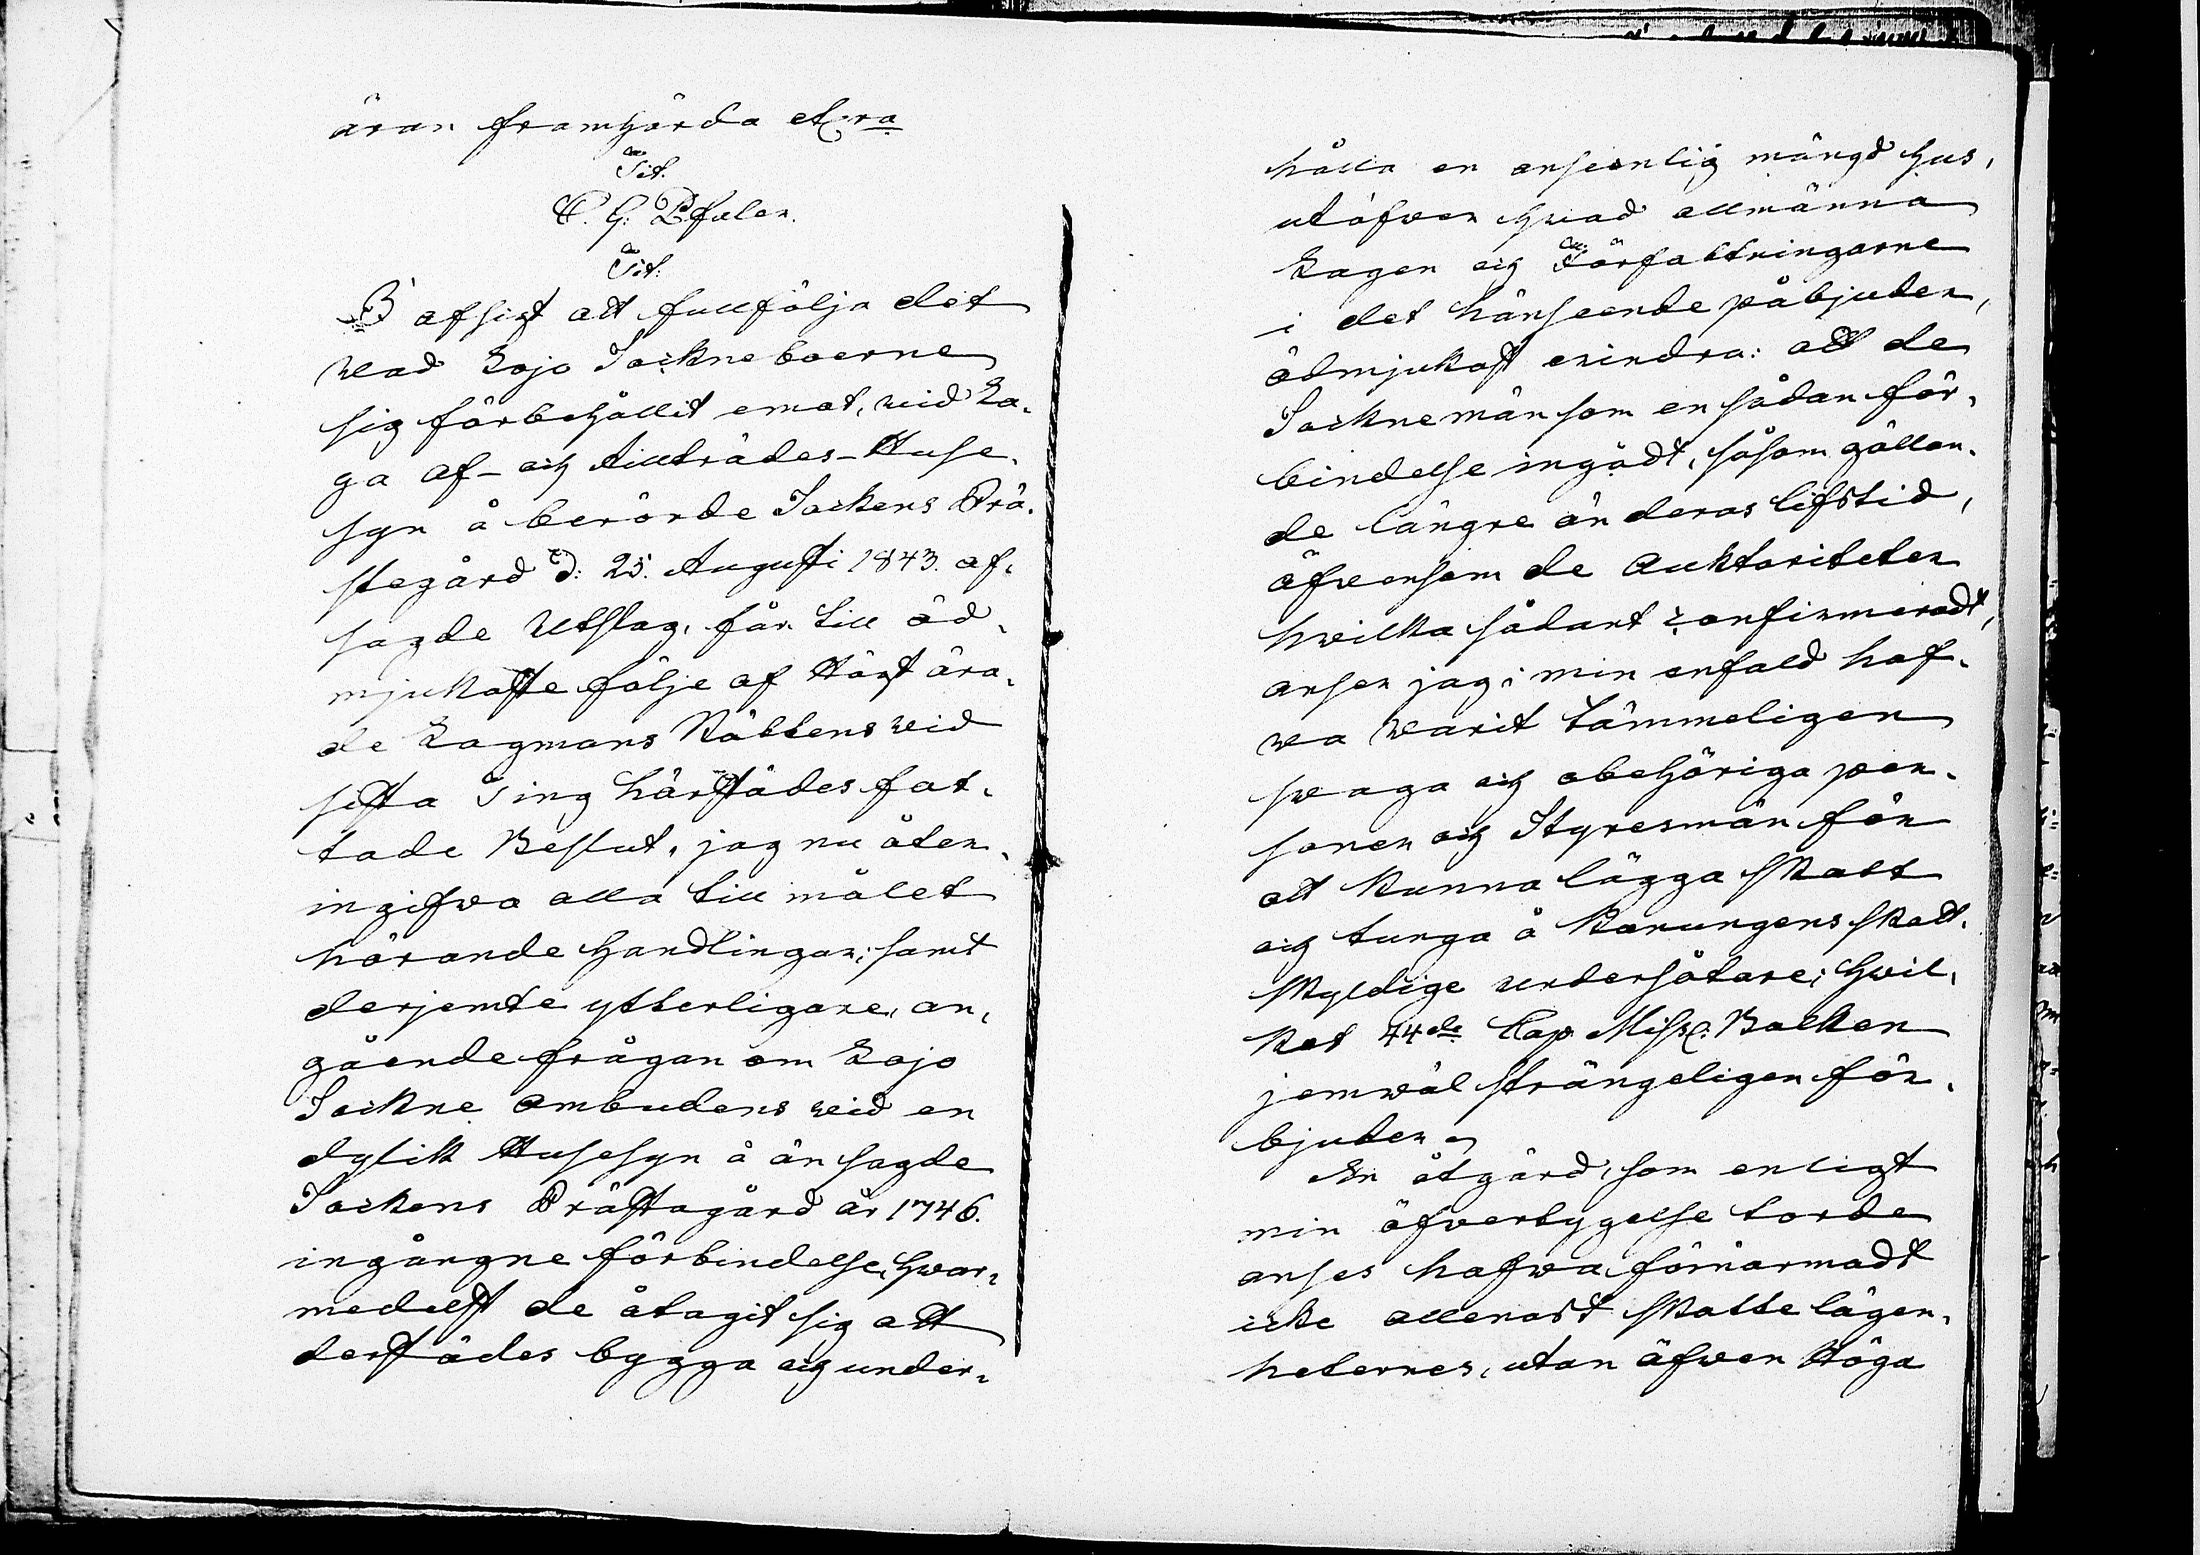 äran framhärda etc:ra
Tit.
C. G. Pfaler.
Tit:
I afsigt att fullfölja det
wad Lojo Sockneboerne
sig förbehållit emot, wid La-
ga af- och tillträdes-Huse-
syn å berörde Sockens Prä-
stegård d: 25. Augusti 1843. af-
sagde Utslag, får till öd-
mjukaste följe af Högt ära-
de Lagmans Rättens wid
sista Ting härstädes fat-
tade Beslut, jag nu åter-
ingifwa alla till målet
hörande Handlingar; samt
derjemte ytterligare, an-
gående frågan om Lojo
Sockne ombudens wid en
dylik Husesyn å än sagde
Sockens Prästagård år 1746.
ingångne förbindelse, hwar-
medelst de åtagit sig att
derstädes bygga och under-
hålla en ansenlig mängd hus,
utöfwer hwad allmänna
Lagen och Författningarne
i det hänseende påbjuder,
ödmjukast erindra: att de
Socknemän som en sådan för-
bindelse ingådt, såsom gällan-
de längre än deras lifstid,
äfwensom de Auktoriteter
hwilka sådant confirmeradt,
anser jag i min enfald haf-
wa warit tämmeligen
swaga och obehöriga per-
soner och Styresmän för
att kunna lägga skatt
och tunga å Konungens skatt-
skyldige undersåtare; hwil-
ket 44de Cap Missg. Balken
jemwäl strängeligen för-
bjuder
En åtgärd, som enligt
min öfvertygelse torde
anses hafwa förnärmadt
icke allenast Skatte lägen-
heternes, utan äfwen Höga